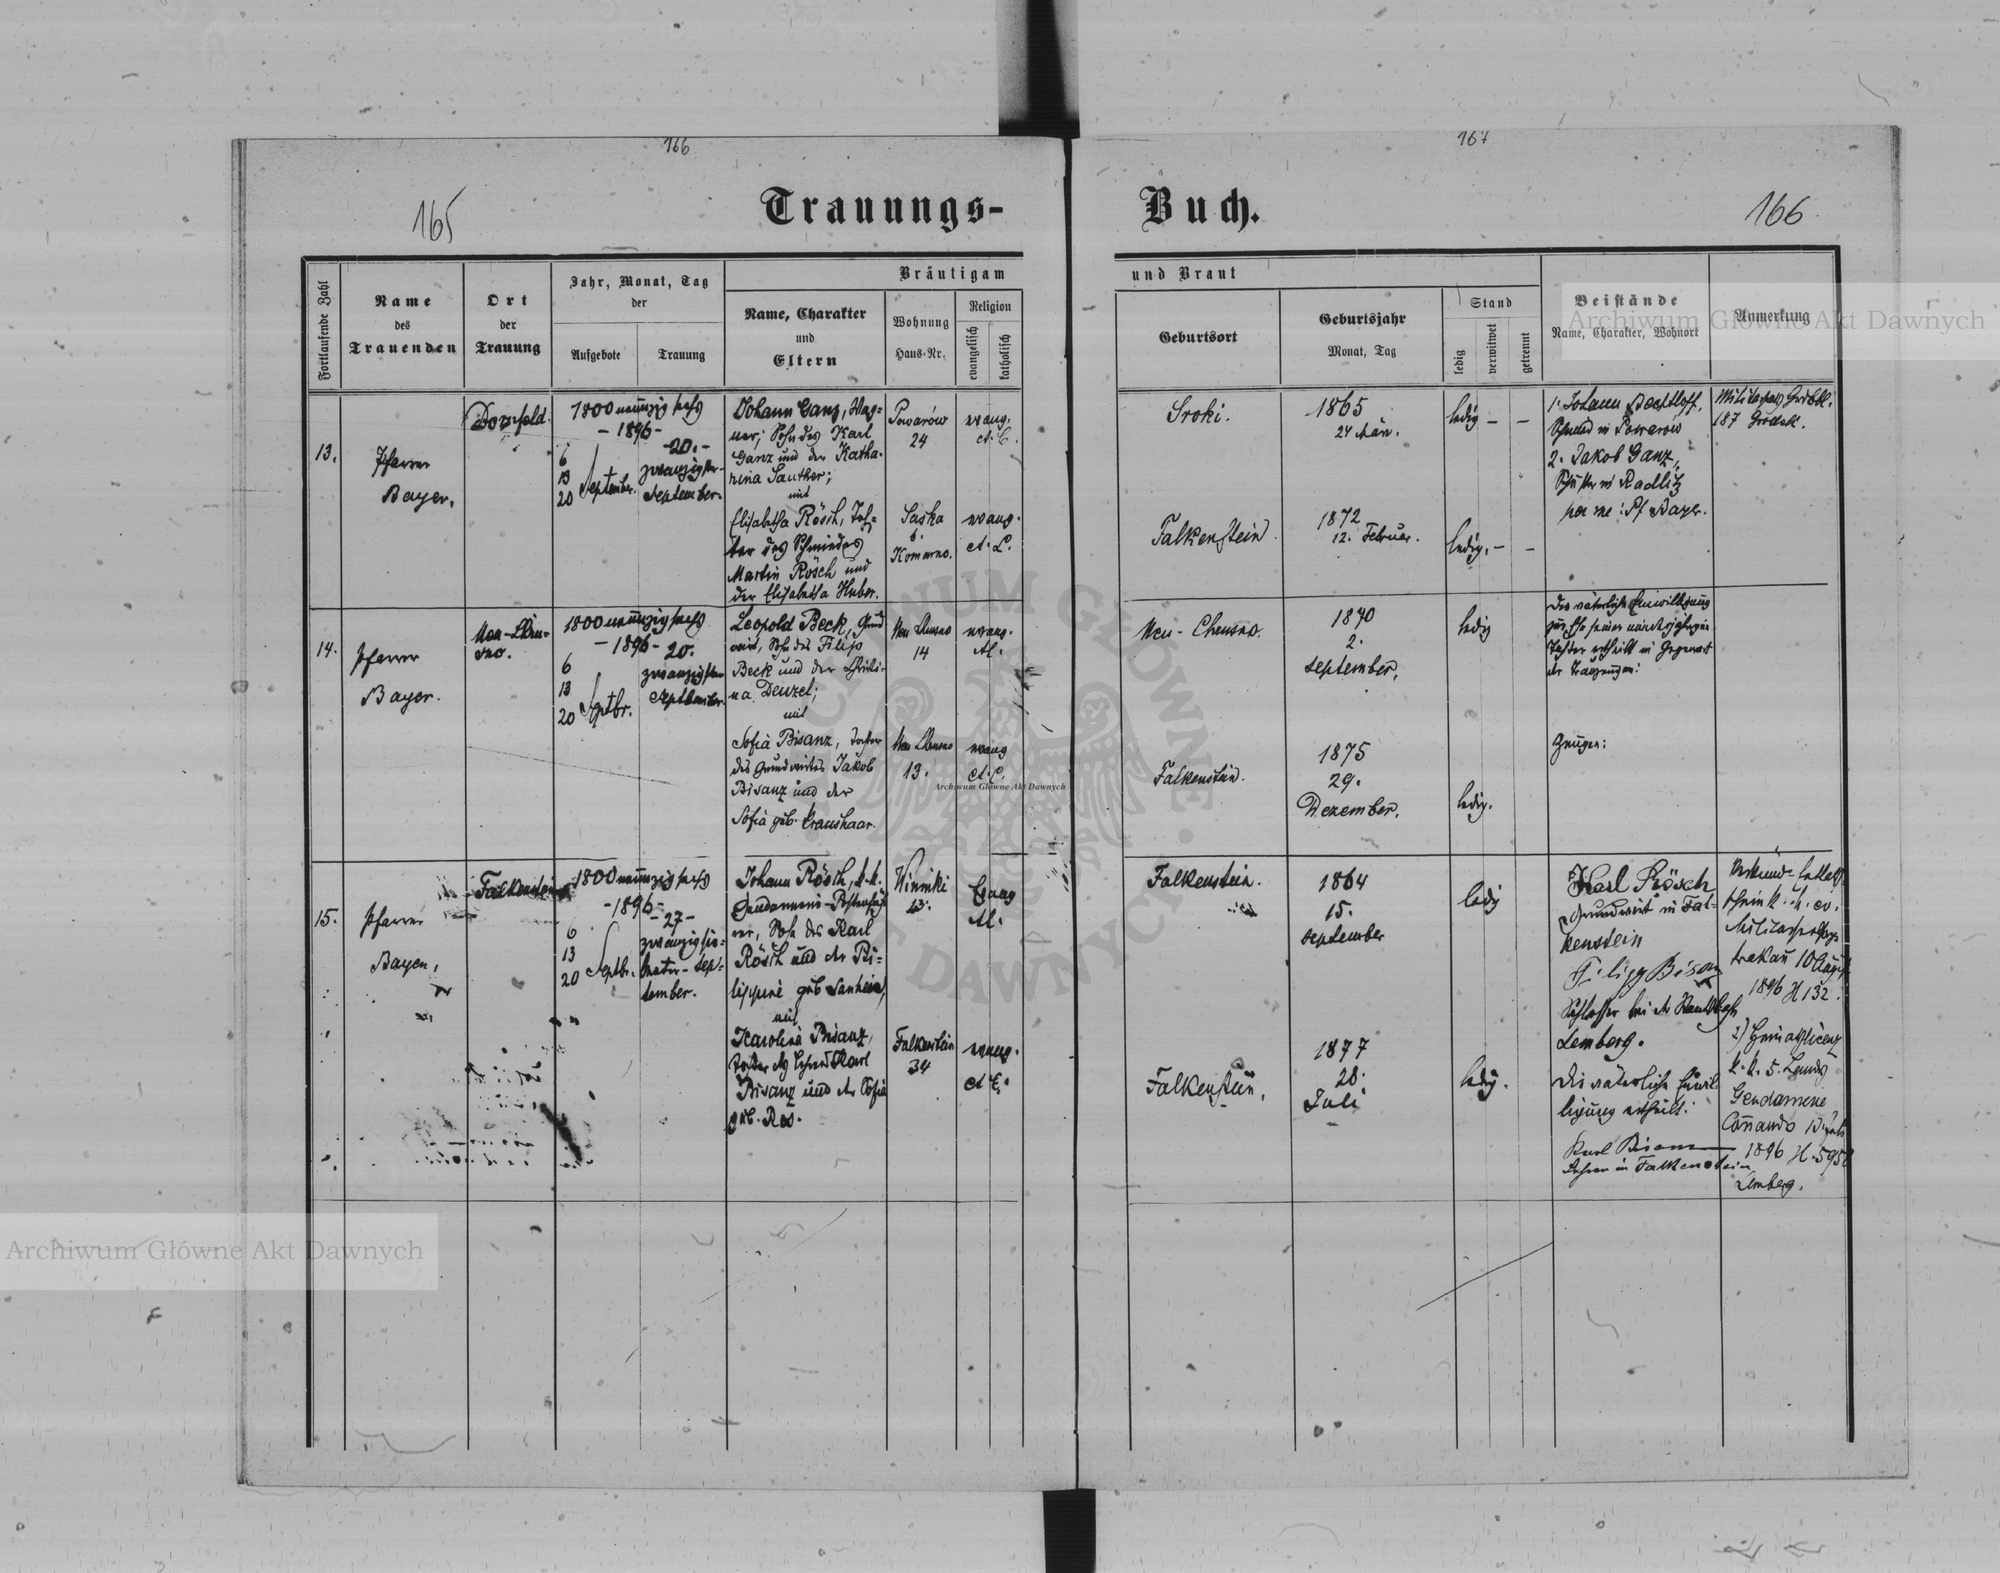 166
167
165
Trauungs-
Buch.
166
Fortlaufende Zahl
Name
des
Trauenden
Ort
der
Trauung
Jahr, Monat, Tag
der
Aufgebote
Trauung
Bräutigam
Name, Charakter
und
Eltern
Wohnung
Haus-Nr.
Religion
evangelisch
katholisch
und Braut
Geburtsort
Geburtsjahr
Monat, Tag
Stand
ledig
verwitwet
getrennt
Beistände
Name, Charakter, Wohnort
Anmerkung
Archiwum Główne Akt Dawnych
13.
Pfarrer
Bayer.
Dornfeld.
1800 neunzig sechs
- 1896 -
6
13
20 September.
- 20. -
zwanzigster
September.
Johann Ganz, Wag-
ner; Sohn des Karl
Ganz und der Katha-
rina Sauther;
mit
Elisabetha Rösch, Toch-
ter des Schmiedes
Martin Rösch und
der Elisabetha Huber.
Powarów
24
Saska
b.
Komarno.
evang.
A. C.
evang.
A. C.
Sroki.
Falkenstein.
1865
24 März.
1872
12. Februar.
ledig - -
ledig. - -
1. Johann
Schmied in Powarow
2. Jakob Ganz,
in Radlitz
per me: Pf Bayer.
187 Grodek.
14.
Pfarrer
Bayer.
Neu-Chru-
sno.
1800 neunzig sechs
- 1896 -
6
13
20 Septbr.
20.
zwanzigsten
September.
Leopold Beck, Grund
wirt, Sohn des Filip
Beck und der Christi-
na Denzel;
mit
Sofia Bisanz, Tochter
des Grundwirtes Jakob
Bisanz und der
Sofia geb. Kraushaar.
Neu Chrusno
14
Neu Chrusno
13.
evang.
A.
evang
A. C.
Neu-Chrusno.
Falkenstein.
1870
2.
September.
1875
29.
Dezember.
ledig
ledig.
Die väterliche Einwilligung
zur Ehe seiner minderjährigen
Tochter ertheilt in Gegenwart
der Trauzeugen:
Zeugen:
Archiwum Główne Akt Dawnych
15.
Pfarrer
Bayer.
Falkenstein
1800 neunzig sechs
- 1896 -
6
13
20 Septbr.
- 27 -
zwanzig sie-
benter - Sep-
tember.
Johann Rösch, k. k.
Gendarmerie-Postenfüh-
rer, Sohn des Karl
Rösch und der Fi-
lippine geb
mit
Karolina Bisanz,
Tochter des Lehrers Karl
Bisanz und der Sofia
geb. Ros.
Winniki
Falkenstein
34
Evang
A.
evang.
A. C.
Falkenstein.
Falkenstein.
1864
15.
September
1877
28.
Juli
ledig
ledig.
Karl Rösch
Grundwirt in Fal-
kenstein
Filipp Bisanz
Schlosser bei der
Lemberg.
Die väterliche Einwil-
ligung ertheilt:
Karl Bisanz
Lehrer in Falkenstein
schein k. u. ev.
Krakau 10 August
1896 H 132.
2)
k. k. 5. Landes
Gendarmerie
Comando
1896
Lemberg.
Archiwum Główne Akt Dawnych
ARCHIWUM GŁÓWNE AKT DAWNYCH